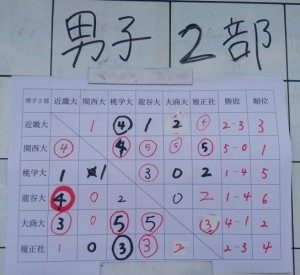 男子 2部
男子2部 近畿大 関西大 桃学大 龍谷大 大商大 履正社 勝敗 順位
近畿大 1 ④ 1 2 ④ 2-3 3
関西大 ④ ④ ⑤ ⑤ ⑤ 5-0 1
桃学大 1 1 ③ 0 2 1-4 5
龍谷大 ④ 0 2 0 2 1-4 6
大商大 ③ 0 ⑤ ⑤ ③ 4-1 2
履正社 1 0 ③ ③ 2 2-3 4